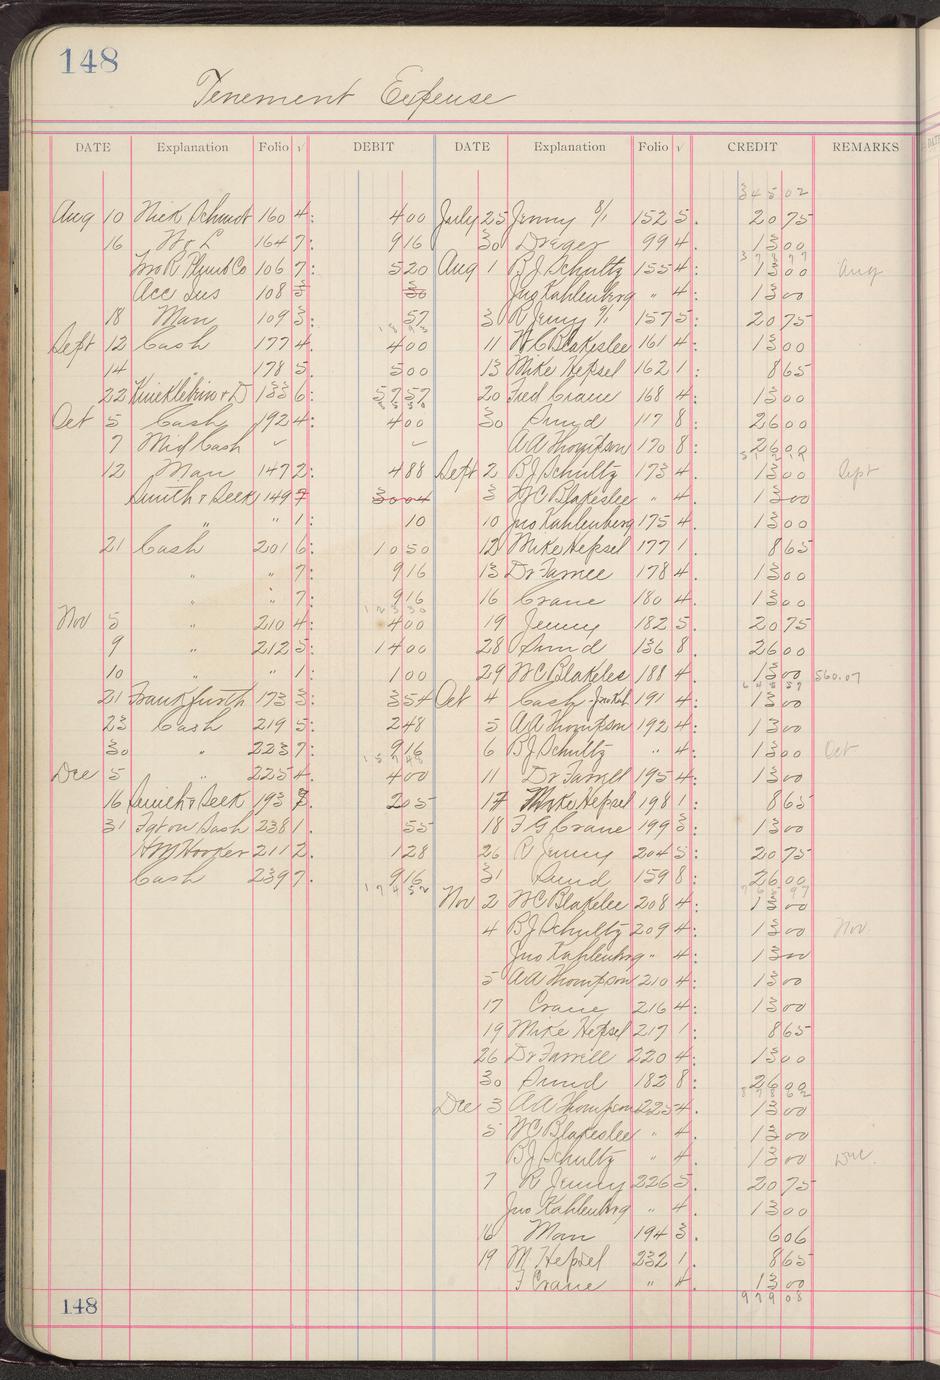 148
Tenement Expense
DATE Explanation Folio √ DEBIT DATE Explanation Folio √ CREDIT REMARKS
345 02
Aug 10 Nick Schmidt 160 4: 4 00 July 25 Jenny 8/1 152 5. 20 75
16 W & L 164 7: 9 16 30 Dreger 99 4. 13 00
378 77
Jno R Plumb Co 106 7: 5 20 Aug 1 B J Schultz 155 4: 13 00 Aug
Acc Sus 108 3 30 Jno Kahlenberg " 4: 13 00
18 Man 109 3: 57 3 R Jenny 9/1 157 5: 20 75
18 93
Sept 12 Cash 177 4. 4 00 11 W C Blakeslee 161 4: 13 00
14 " 178 5. 5 00 13 Mike Hepsel 162 1: 8 65
22 & D 133 6: 57 57 20 Fred Crane 168 4: 13 00
Oct 5 Cash 192 4: 4 00 30 Sund 117 8: 26 00
7 Mid Cash " " A A Thompson 170 8: 26 00
12 Man 147 2: 4 88 Sept 2 B J Schultz 173 4: 13 00 Sept
Smith & Seek 149 7 30 04 3 W C Blakeslee " 4. 13 00
" " 1: 10 10 Jno Kahlenberg 175 4: 13 00
21 Cash 201 6: 10 50 12 Mike Hepsel 177 1. 8 65
" " 7: 9 16 13 Dr Farrell 178 4. 13 00
" " 7: 9 16 16 Crane 180 4. 13 00
123 30
Nov 5 " 210 4: 4 00 19 Jenny 182 5: 20 75
9 " 212 5: 14 00 28 Sund 136 8 26 00
10 " " 1: 1 00 29 W C Blakeles 188 4. 13 00 560.07
21 Frankfurth 173 3: 3 54 Oct 4 Cash - Jno Kah 191 4: 13 00
23 Cash 219 5: 2 48 5 A A Thompson 192 4: 13 00
30 " 223 7: 9 16 6 B J Schultz " 4: 13 00 Oct
157 48
Dec 5 " 225 4. 4 00 11 Dr Farrell 195 4: 13 00
16 Smith & Seek 193 3. 2 05 17 Mike Hepsel 198 1: 8 65
31 Cash 238 1. 55 18 F G Crane 199 3: 13 00
H M Hooker 211 2. 1 28 26 R Jenny 204 5: 20 75
Cash 239 7. 9 16 31 Sund 159 8: 26 00
174 52
Nov 2 W C Blakelee 208 4: 13 00
4 B J Schultz 209 4: 13 00 Nov.
Jno Kahlenbrg " 4: 13 00
5 A A Thompson 210 4: 13 00
17 Crane 216 4: 13 00
19 Mike Hepsel 217 1: 8 65
26 Dr Farrell 220 4: 13 00
30 Sund 182 8: 26 00
878 62
Dec 3 A A Thompson 225 4. 13 00
5 W C Blakeslee " 4. 13 00
B J Schultz " 4. 13 00 Dec.
7 R Jenny 226 5. 20 75
Jno Kahlenbrg " 4. 13 00
6 Man 194 3. 6 06
19 M Hepsel 232 1. 8 65
F Crane " 4. 13 00
148
979 08